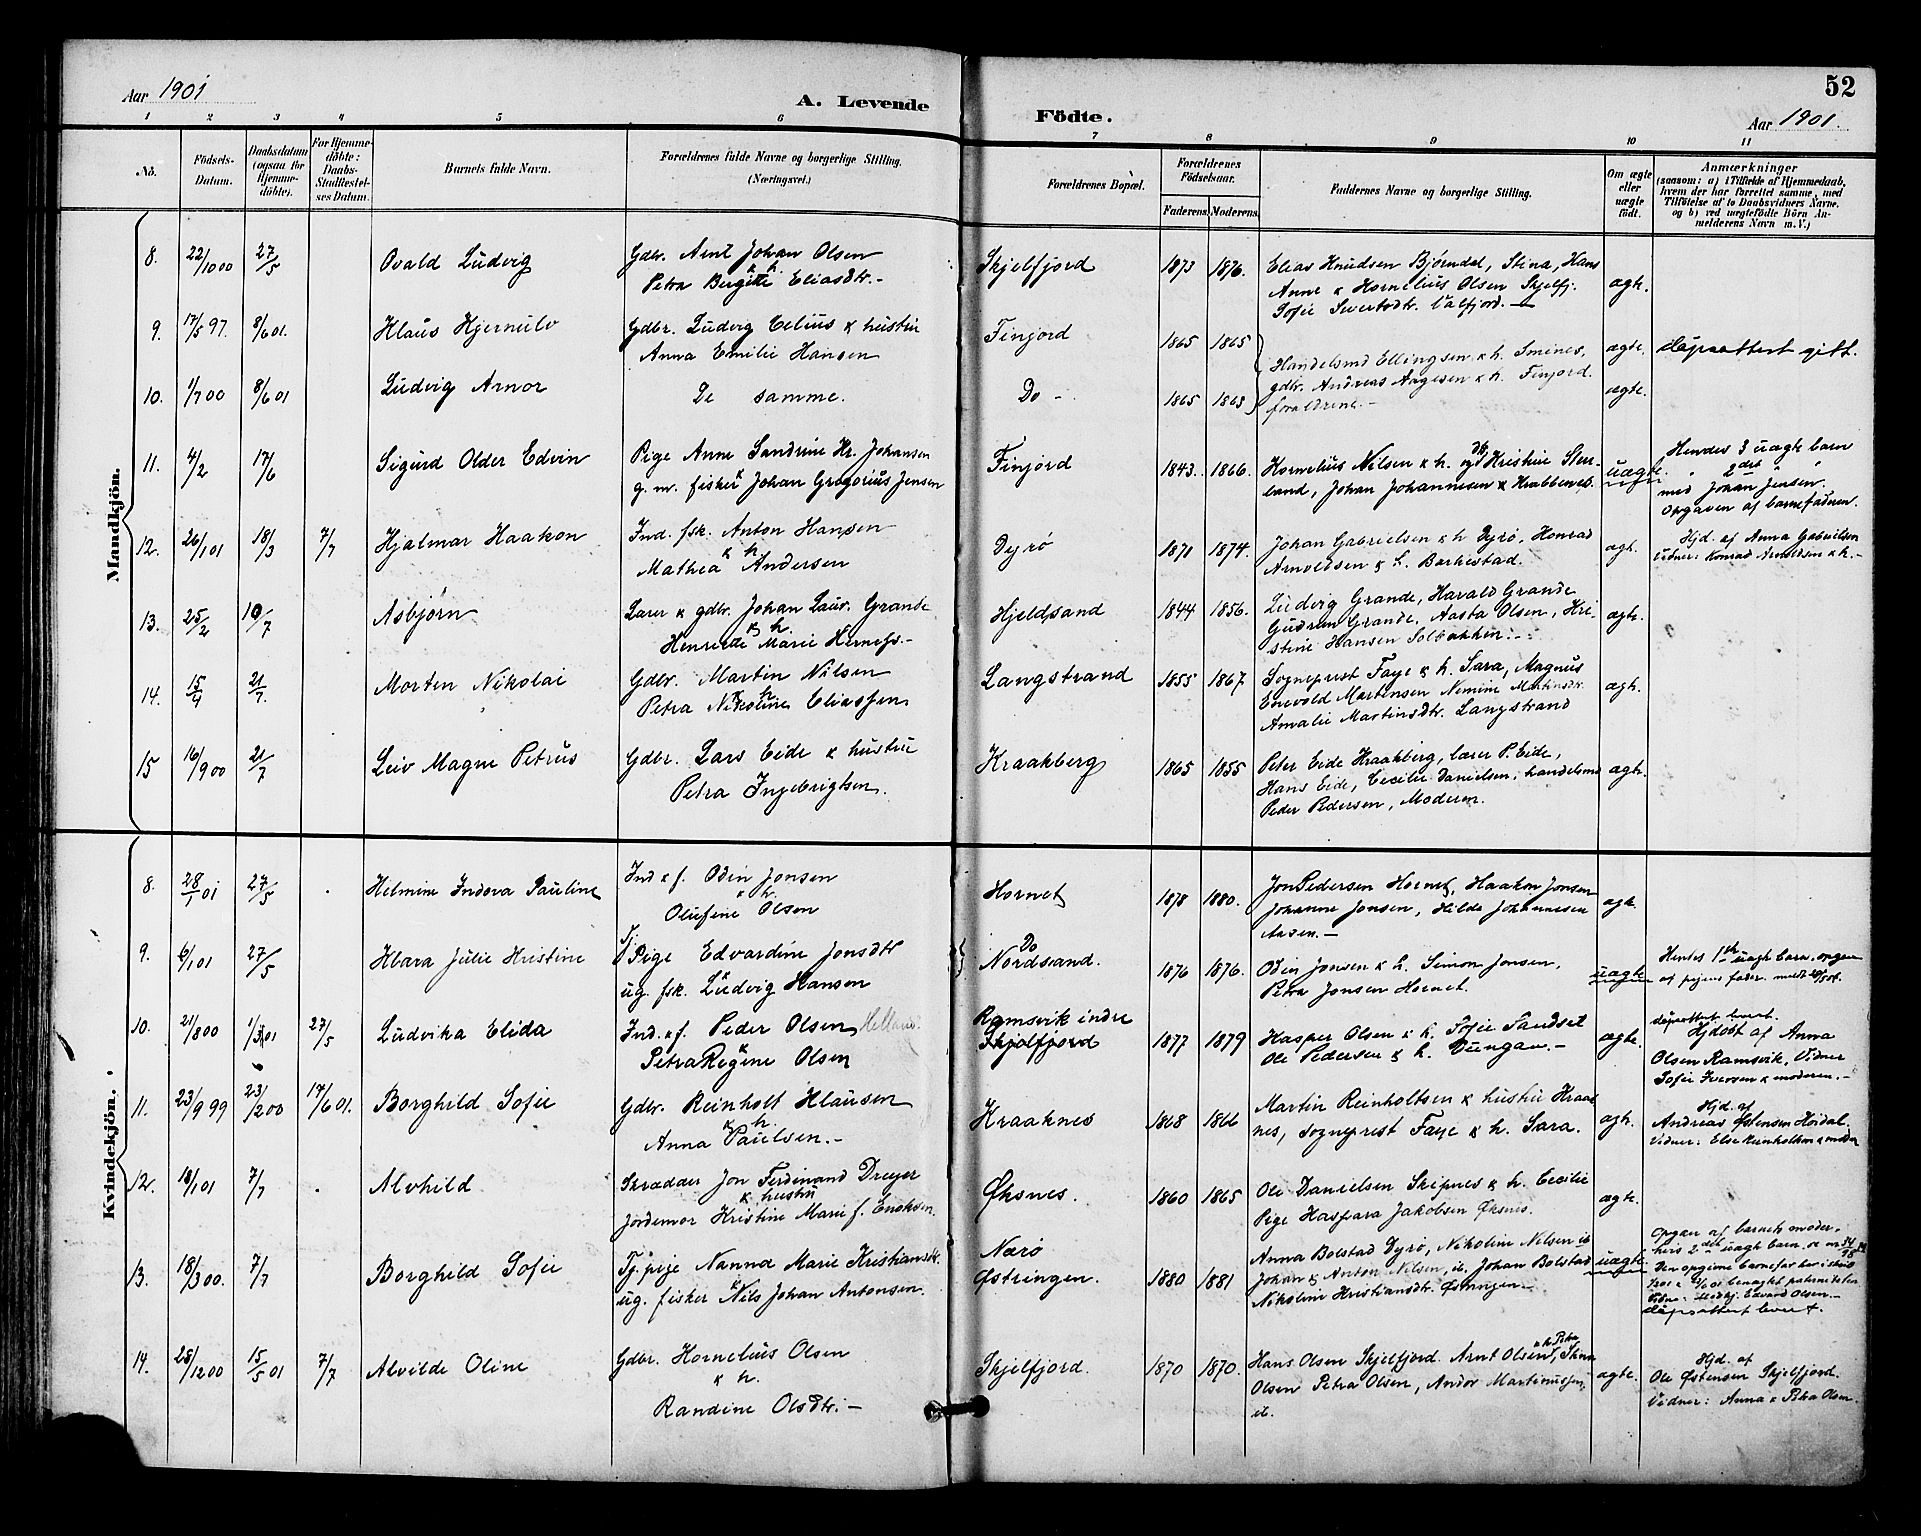 52
Aar 1901
A. Levende
Födte.
Aar 1901.
1 2 3 4 5 6 7 8 9 10 11
No.
Födsels-Datum.
Daabsdatum (ogsaa for Hjemmedöbte).
For Hjemmedöbte: Daabs-Stadfæstelses Datum.
Barnets fulde Navn.
Forældrenes fulde Navne og borgerlige Stilling.
(Næringsvei.)
Forældrenes Bopæl.
Forældrenes Födselsaar.
Faderens. Moderens.
Faddernes Navne og borgerlige Stilling.
Om ægte eller uægte födt.
Anmærkninger
(saasom: a) i Tilfælde af Hjemmedaab, hvem der har forrettet samme, med Tilföielse af to Daabsvidners Navne, og b) ved uægtefödte Börn Anmelderens Navn m.V.)
Mandkjön.
8. 22/10 00 27/5 Ovald Ludvig Gdbr. Arnt Johan Olsen Skjelfjord 1873 1876. Elias Knudsen Bjørndal, Stina, Hans
& h.
Petra Bergitte Eliasdtr. Anne & Hornelius Olsen Skjelfj. ægte.
Sofie Sivertsdtr. Valfjord.
9. 17/5 97. 8/6 01. Klaus Hjernulv Gdbr. Ludvig Celius & hustru Finjord 1865 1865
Anna Emilie Hansen Handelsmd Ellingsen & h. Smines, ægte.
10. 1/7 00 8/6 01 Ludvig Arnor De samme. Do 1865 1865 gdbr. Andreas Aagesen & h. Finjord. ægte.
forældrene.
11. 4/2 17/6 Sigurd Older Edvin Pige Anne Sandrine Hr. Johansen Finjord 1843. 1866. Kornelius Nilsen & h. og Kristine
g. m. fisker Johan Gregorius Jensen land, Johan Johannesen uægte. Hendes 3 uægte barn
2det
med Johan Jensen.
Opgaven af barnefaderen.
12. 26/1 01 18/3 7/7 Hjalmar Haakon Ind. fsk. Anton Hansen Dyrø 1871 1874. Johan Gabrielsen & h Dyrø, Konrad ægte. Hjd. af Anna Gabrielsen
& h
Mathea Andersen Arnoldsen & h. Barkestad. Vidner: Konrad Arnoldsen & h.
13. 25/2 10/7 Asbjørn Lærer & gdbr. Johan Laur. Grande Hjeldsand 1844 1856. Ludvig Grande, Harald Grande
& h.
Henriette Marie Gudrun Grande, Aasta Olsen, Kri- ægte.
stine Hansen Solbakken.
14. 15/4 21/7. Morten Nikolai Gdbr. Martin Nilsen Langstrand 1855 1867 Sogneprest Faye & h. Sara, Magnus
& h
Petra Nikoline Eliassen Enevold Martensen Nemine Martinsdtr. ægte.
Amalie Martinsdtr. Langstrand
15 16/9 00 21/7 Leiv Magne Petrus Gdbr. Lars Eide & hustru Kraakberg 1865 1855 Peter Eide Kraakberg, lærer P. Eide,
Petra Ingebrigtsen. Hans Eide, Cecilie Danielsen, handelsmd ægte.
Peder Pedersen, Moderen.
Kvindekjön.
8. 28/1 01 27/5 Helmine Indora Pauline Ind & f. Odin Jonsen Hornet 1878 1880. Jon Pedersen Hornet, Haakon Jonsen
& h.
Olufine Olsen Johanne Jonsen, Hilda Johannesen ægte.
Aasen.
9. 6/1 01 27/5 Klara Julie Kristine Tj. Pige Edvardine Jonsdtr Do
Nordsand. 1876 1876. Odin Jonsen & h. Simon Jonsen, uægte Hendes 1ste uægte barn, opgave
ug. fsk. Ludvig Hansen Petra Jonsen Hornet. af pigens fader
10. 21/8 00 1/3 01 27/5 Ludvika Elida Ind. & f. Peder Olsen Ramsvik indre
Skjelfjord 1877 1879 Kasper Olsen & h. Sofie Sandset ægte. Hjdøbt af Anna
Petra Regine Olsen Ole Pedersen & h. Dungan. Olsen Ramsvik, Vidner
Sofie Iversen & moderen.
11. 23/9 99 23/2 00 17/6 01. Borghild Sofie Gdbr. Reinholt Klausen Kraaknes 1868 1866 Martin Reinholtsen & hustru Kraak ægte. Hjd. af
& h.
Anna Paulsen. nes, sogneprest Faye & h. Sara. Andreas Østensen Høidal.
Vidner: Else Reinholtsen & moder
12. 18/1 01 7/7 Alvhild Skrædder Jon Ferdinand Dreyer Øksnes. 1860 1865 Ole Danielsen Skipnes & h. Cecilie ægte.
& hustru
Jordemor Kristine Marie f. Enoksen. Pige Kaspara Jakobsen Øksnes.
13. 18/3 00. 7/7 Borghild Sofie Tj. pige Nanna Marie Kristiansdtr. Nærø
ug. fisker Nils Johan Antonsen. Østringen. 1880 1881 Anna Bolstad Dyrø, Nikoline Nilsen ib uægte. Opgav af barnets moder,
Johan & Anton Nilsen, ib. Johan Bolstad hens 2det uægte barn
Nikoline Kristiansdtr. Østringen Den opgivne barnefar
benægtet paterniteten
Vidne: Edvard Olsen.
14. 28/12 00 15/5 01 7/7 Alvilde Oline Gdbr. Hornelius Olsen Skjelfjord. 1870 1870. Hans Olsen Skjelfjord. Arnt Olsen & h. Petra, Stina ægte. Hjd. af
& h.
Randine Olsdtr. Olsen Petra Olsen, Andor Martinussen, Ole Østensen Skjelfjord.
ib. Vidner: Anna & Petra Olsen.